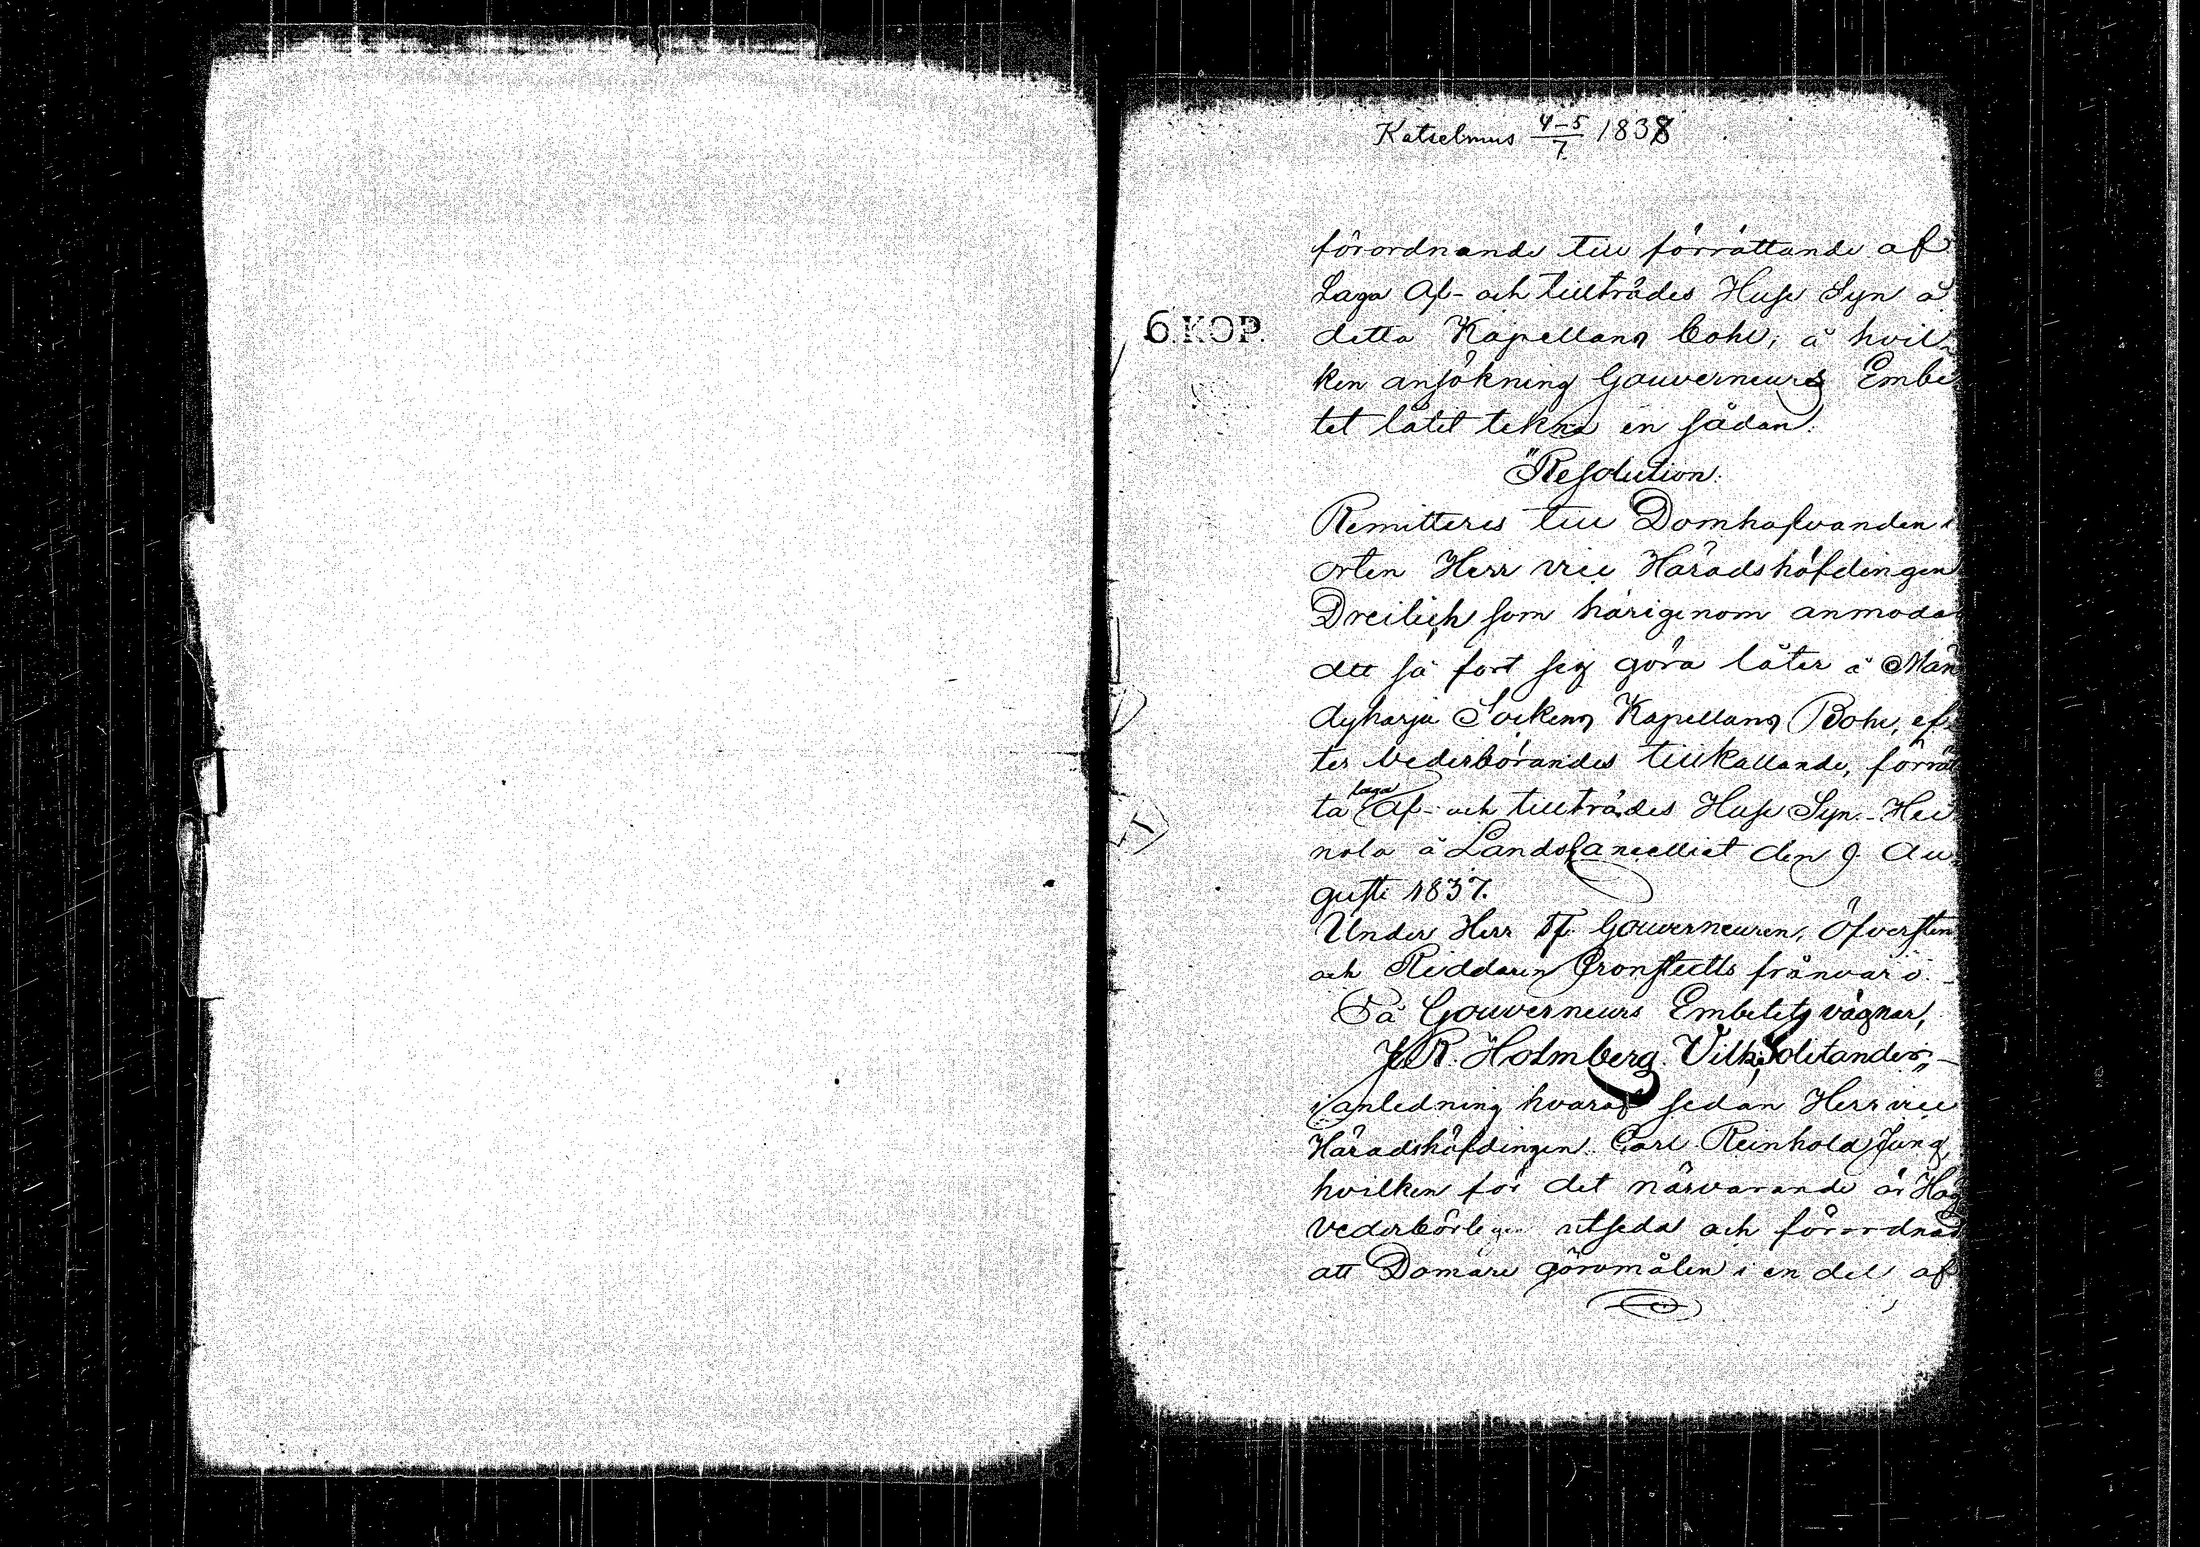 Katselmus 4-5/7 1838
förordnande till förrättande af
Laga Af- och tillträdes Huse Syn å
6. KOP.
detta Kapellans Bohl, å hvil-
ken ansökning Gouverneurs Embe
tet låtit tekna en sådan
"Resolution.
Remitteras till Domhafvanden i
orten Herr vice Häradshöfdingen
Dreilich som härigenom anmodas
att så fort sig göra låter å Män
dyharju Sockens Kapellans Bohl, ef-
ter vederbörandes tillkallande, förrät
ta laga Af- och tillträdes Huse Syn. Hei
nola å Landscancelliet den 9 Au-
gusti 1837.
Under Herr Tf. Gouverneuren, Öfversten
och Riddaren Cronstedts frånvaro.
På Gouverneurs Embetets vägnar,
J. R. Holmberg. Vilh. Soletander,"
i anledning hvaraf sedan Herr vice
Häradshöfdingen Carl Reinhold Jung,
hvilken för det närvarande är Hög
vederbörligen utsedd och förordnad
att Domare göromålen i en del af